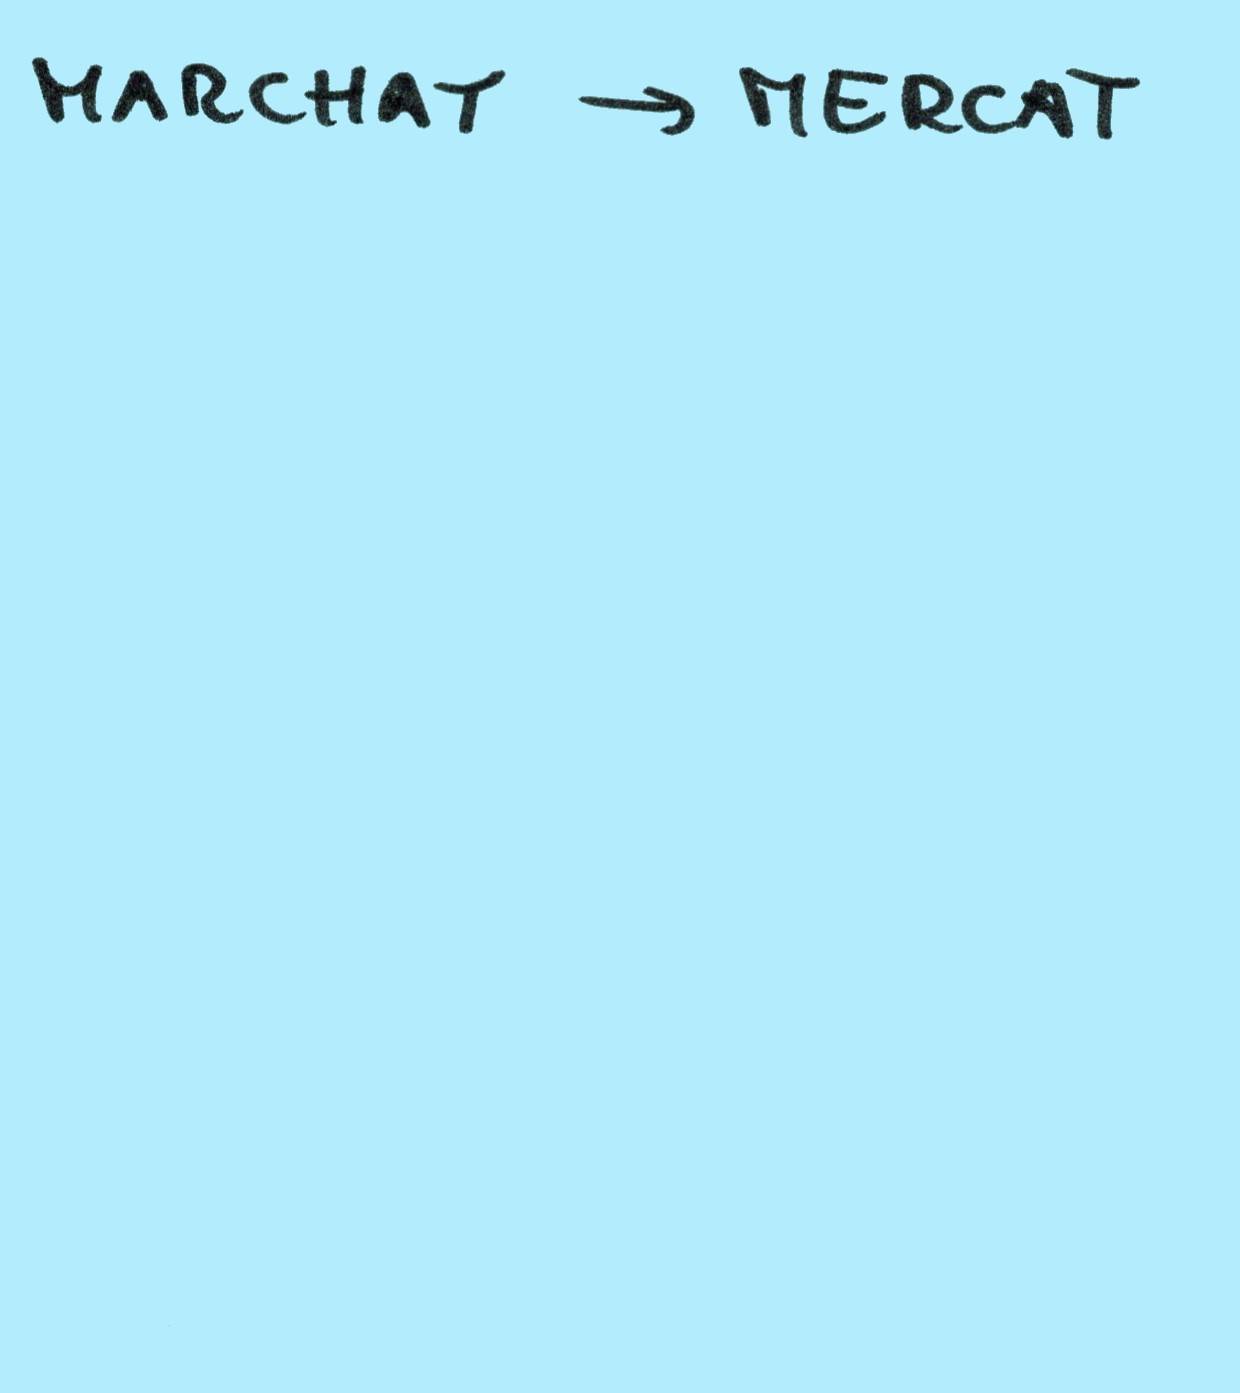 MARCHAT → MERCAT